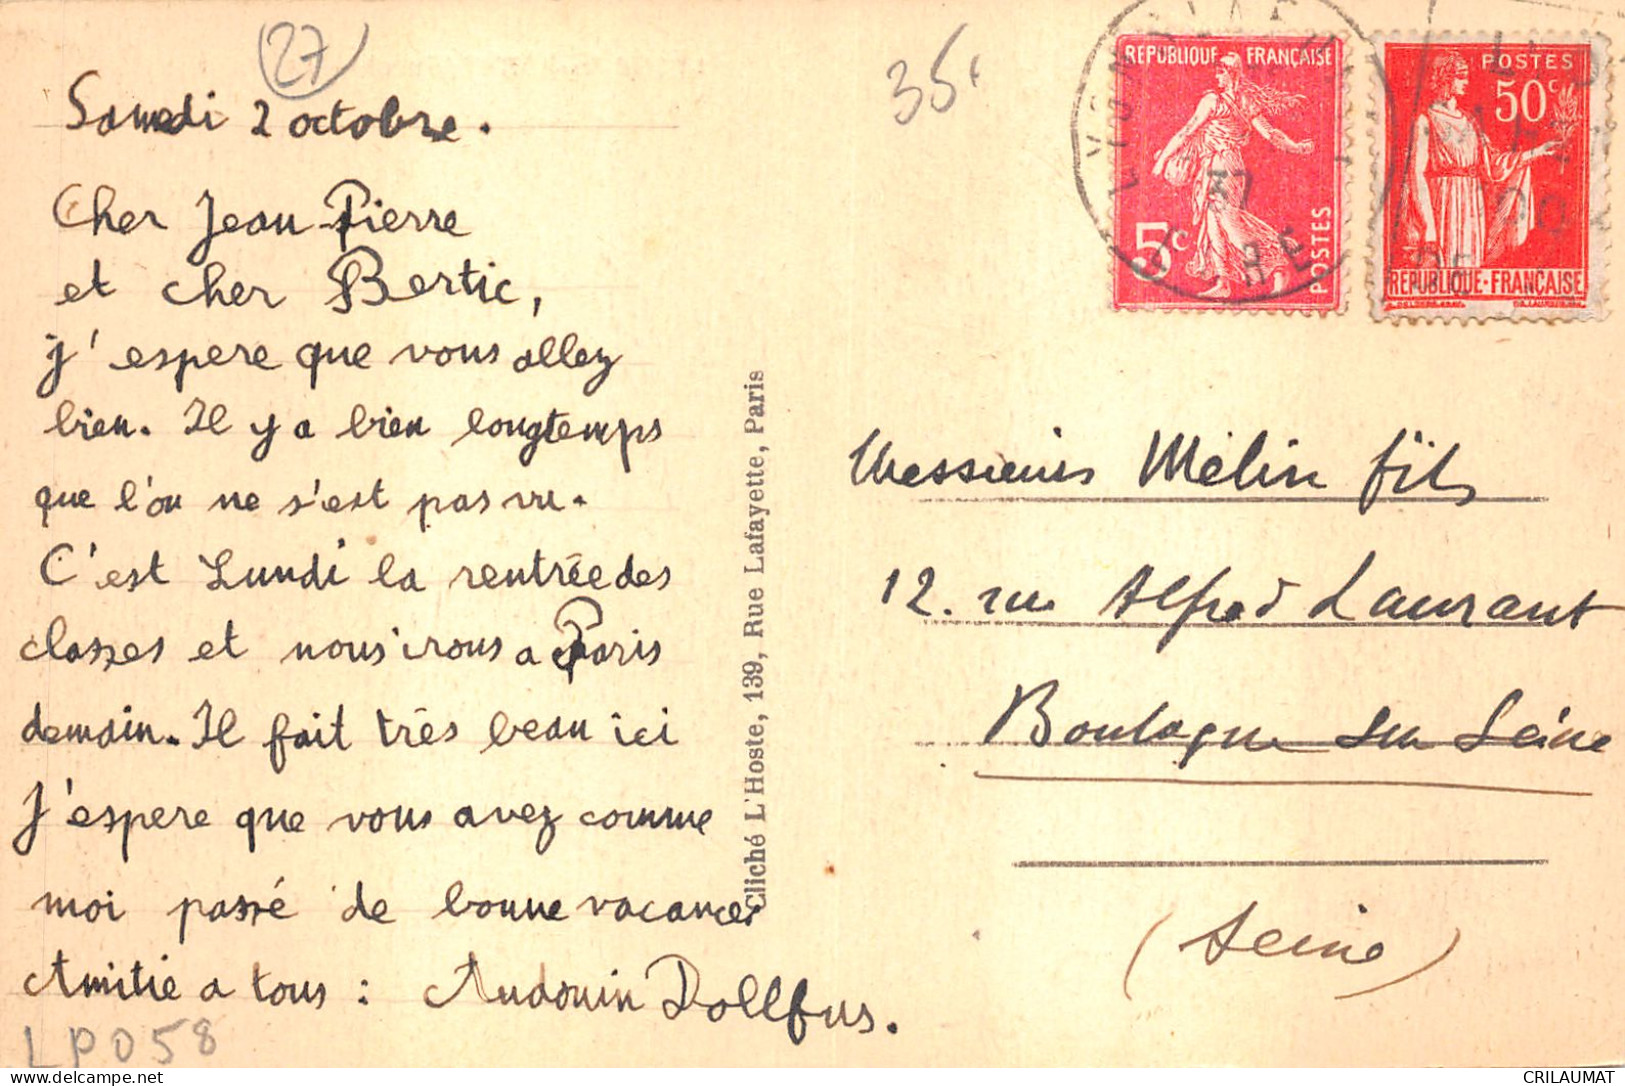 27
35c
Samedi 2 octobre.
Cher Jean-Pierre
et cher Bertic,
j'espere que vous allez
bien. Il y a bien longtemps
que l'on ne s'est pas vu.
C'est Lundi la rentrée des
classes et nous irons a Paris
demain. Il fait très beau ici
J'espere que vous avez comme
moi passé de bonne vacances
Amitie a tous : Audouin Dollfus.
LP058
Cliché L'Hoste, 139, Rue Lafayette, Paris
REPUBLIQUE FRANÇAISE
5c
POSTES
37
POSTES
50c
REPUBLIQUE-FRANÇAISE
Messieurs Mélin fils
12. rue Alfred Laurant
Boulogne sur Seine
(Seine)
CRILAUMAT